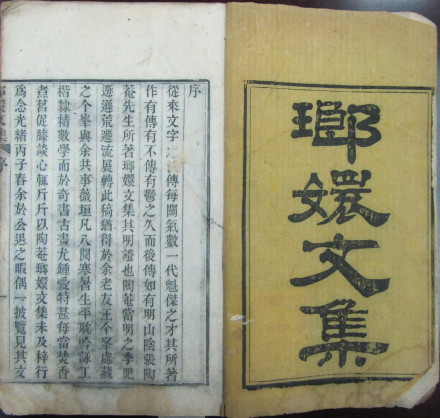 瑯嬛文集
序
從來文字傳每關氣數一代魁傑之才其所著
作有傳有不傳有鬱之久而後傳如有明山陰張陶
菴先生所著瑯嬛文集其明證也陶菴當明之季肥
遯荒流展轉此稿猶得於余老友王个峯處藏
之个峯與余共事微垣凡八閱寒暑生平耽吟詠工
楷隸精數學而於奇書古畫尤鍾愛特甚每當焚香
煮茗促膝談心輒斤斤以陶菴瑯嬛文集未及梓行
爲念光緒丙子春余於公退之暇偶一披覽見其文
嬛文集 序